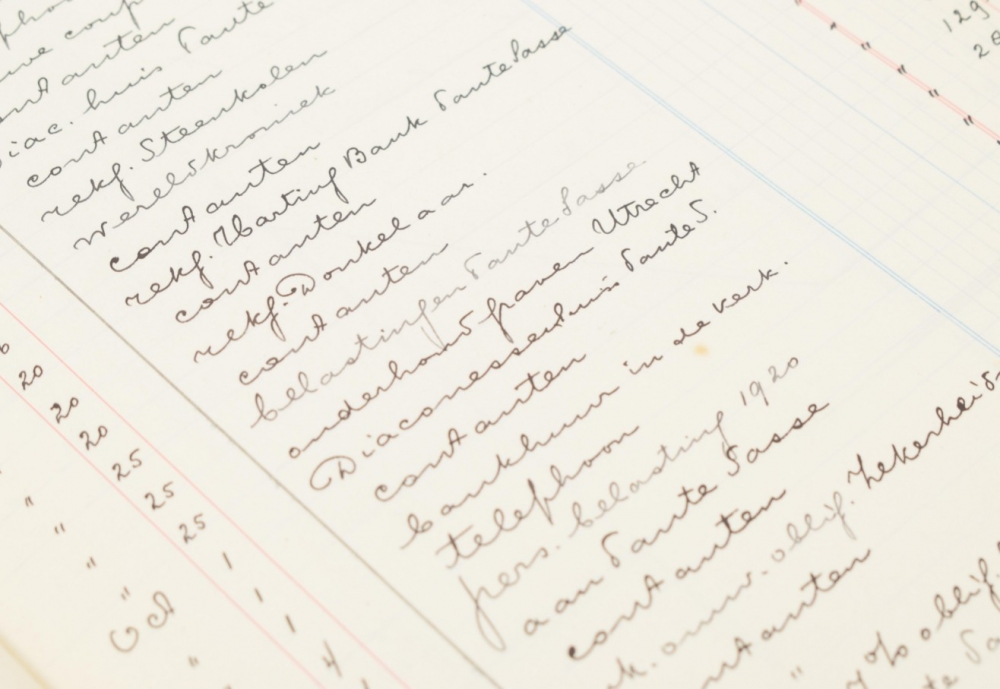 contanten
Diac. huis Tante
contanten
rekg. Steenkolen
wereldkroniek
contanten
rekg. Harting Bank Tante Sasse
contanten
rekg. Donkelaar.
contanten
belastingen Tante Sasse
onderhoud graven Utrecht
Diaconessenhuis Tante S.
contanten
bankhuur in de kerk.
telephoon
pers. belasting 1920
aan Tante Sasse
contanten
oblig. Zekerheid
contanten
% oblig
20
20
20
25
25
25
" 1
" 1
" 1
" 4
Oct
"
129
"
"
"
"
"